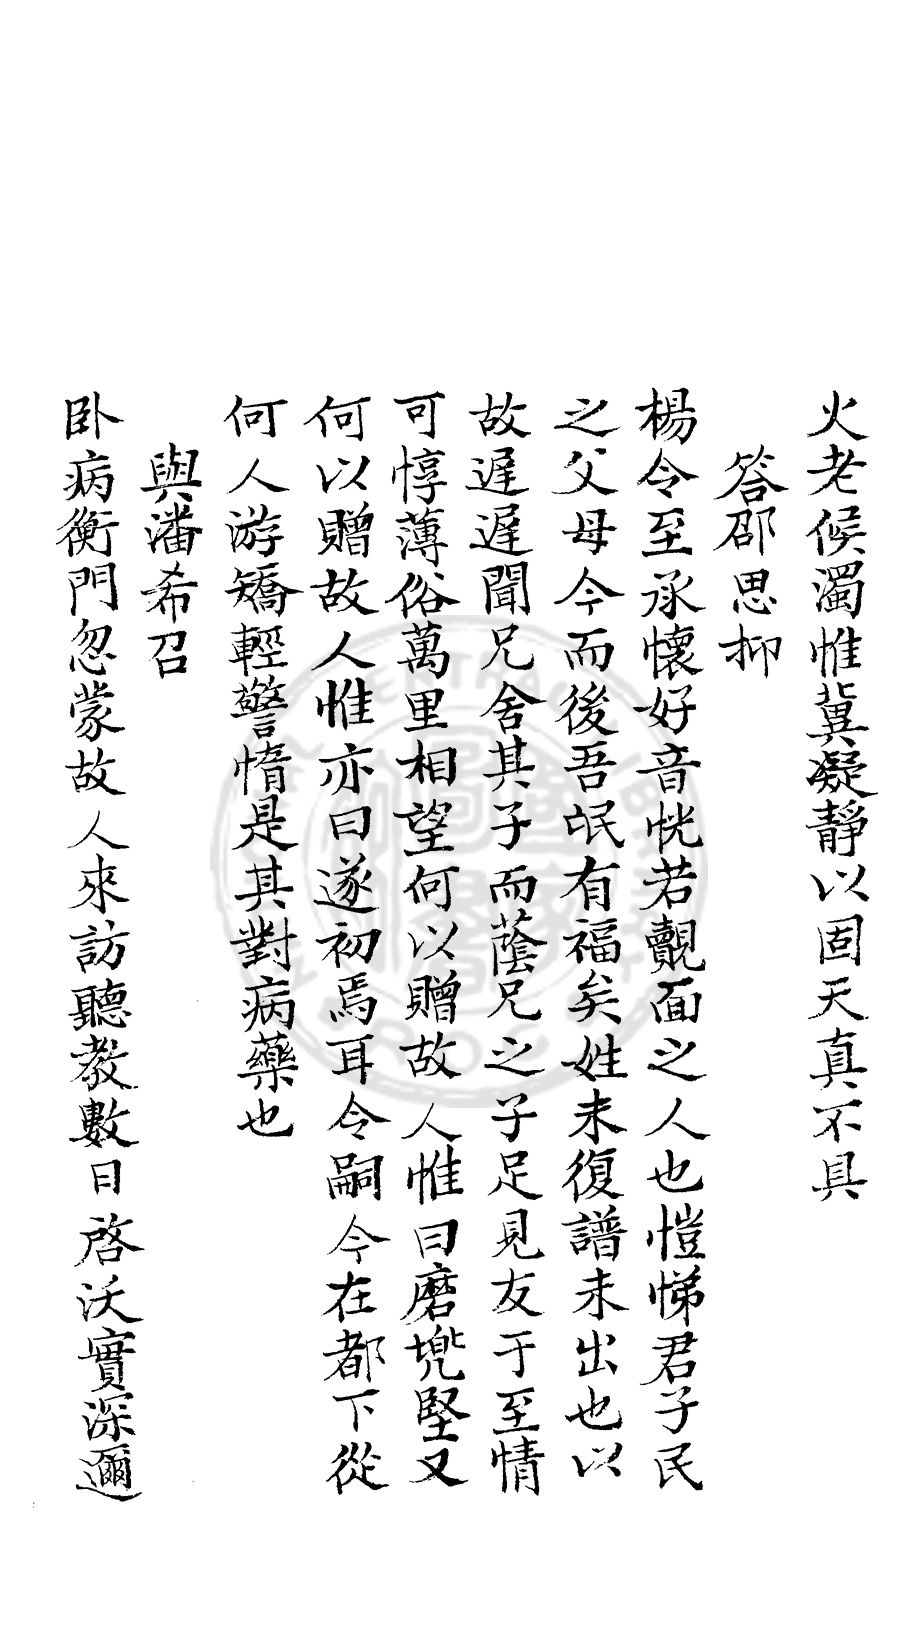 火老候濁惟冀凝靜以固天真不具
答邵思抑
楊令至承懷好音恍若覿面之人也愷悌君子民
之父母今而後吾氓有福矣姓未復譜未出也以
故遲遲聞兄舍其子而蔭兄之子足見友于至情
可惇薄俗萬里相望何以贈故人惟曰磨堅又
何以贈故人惟亦曰遂初焉耳令嗣今在都下從
何人游矯輕警惰是其對病藥也
與潘希召
卧病衡門忽蒙故人來訪聽教數日啓沃實深邇